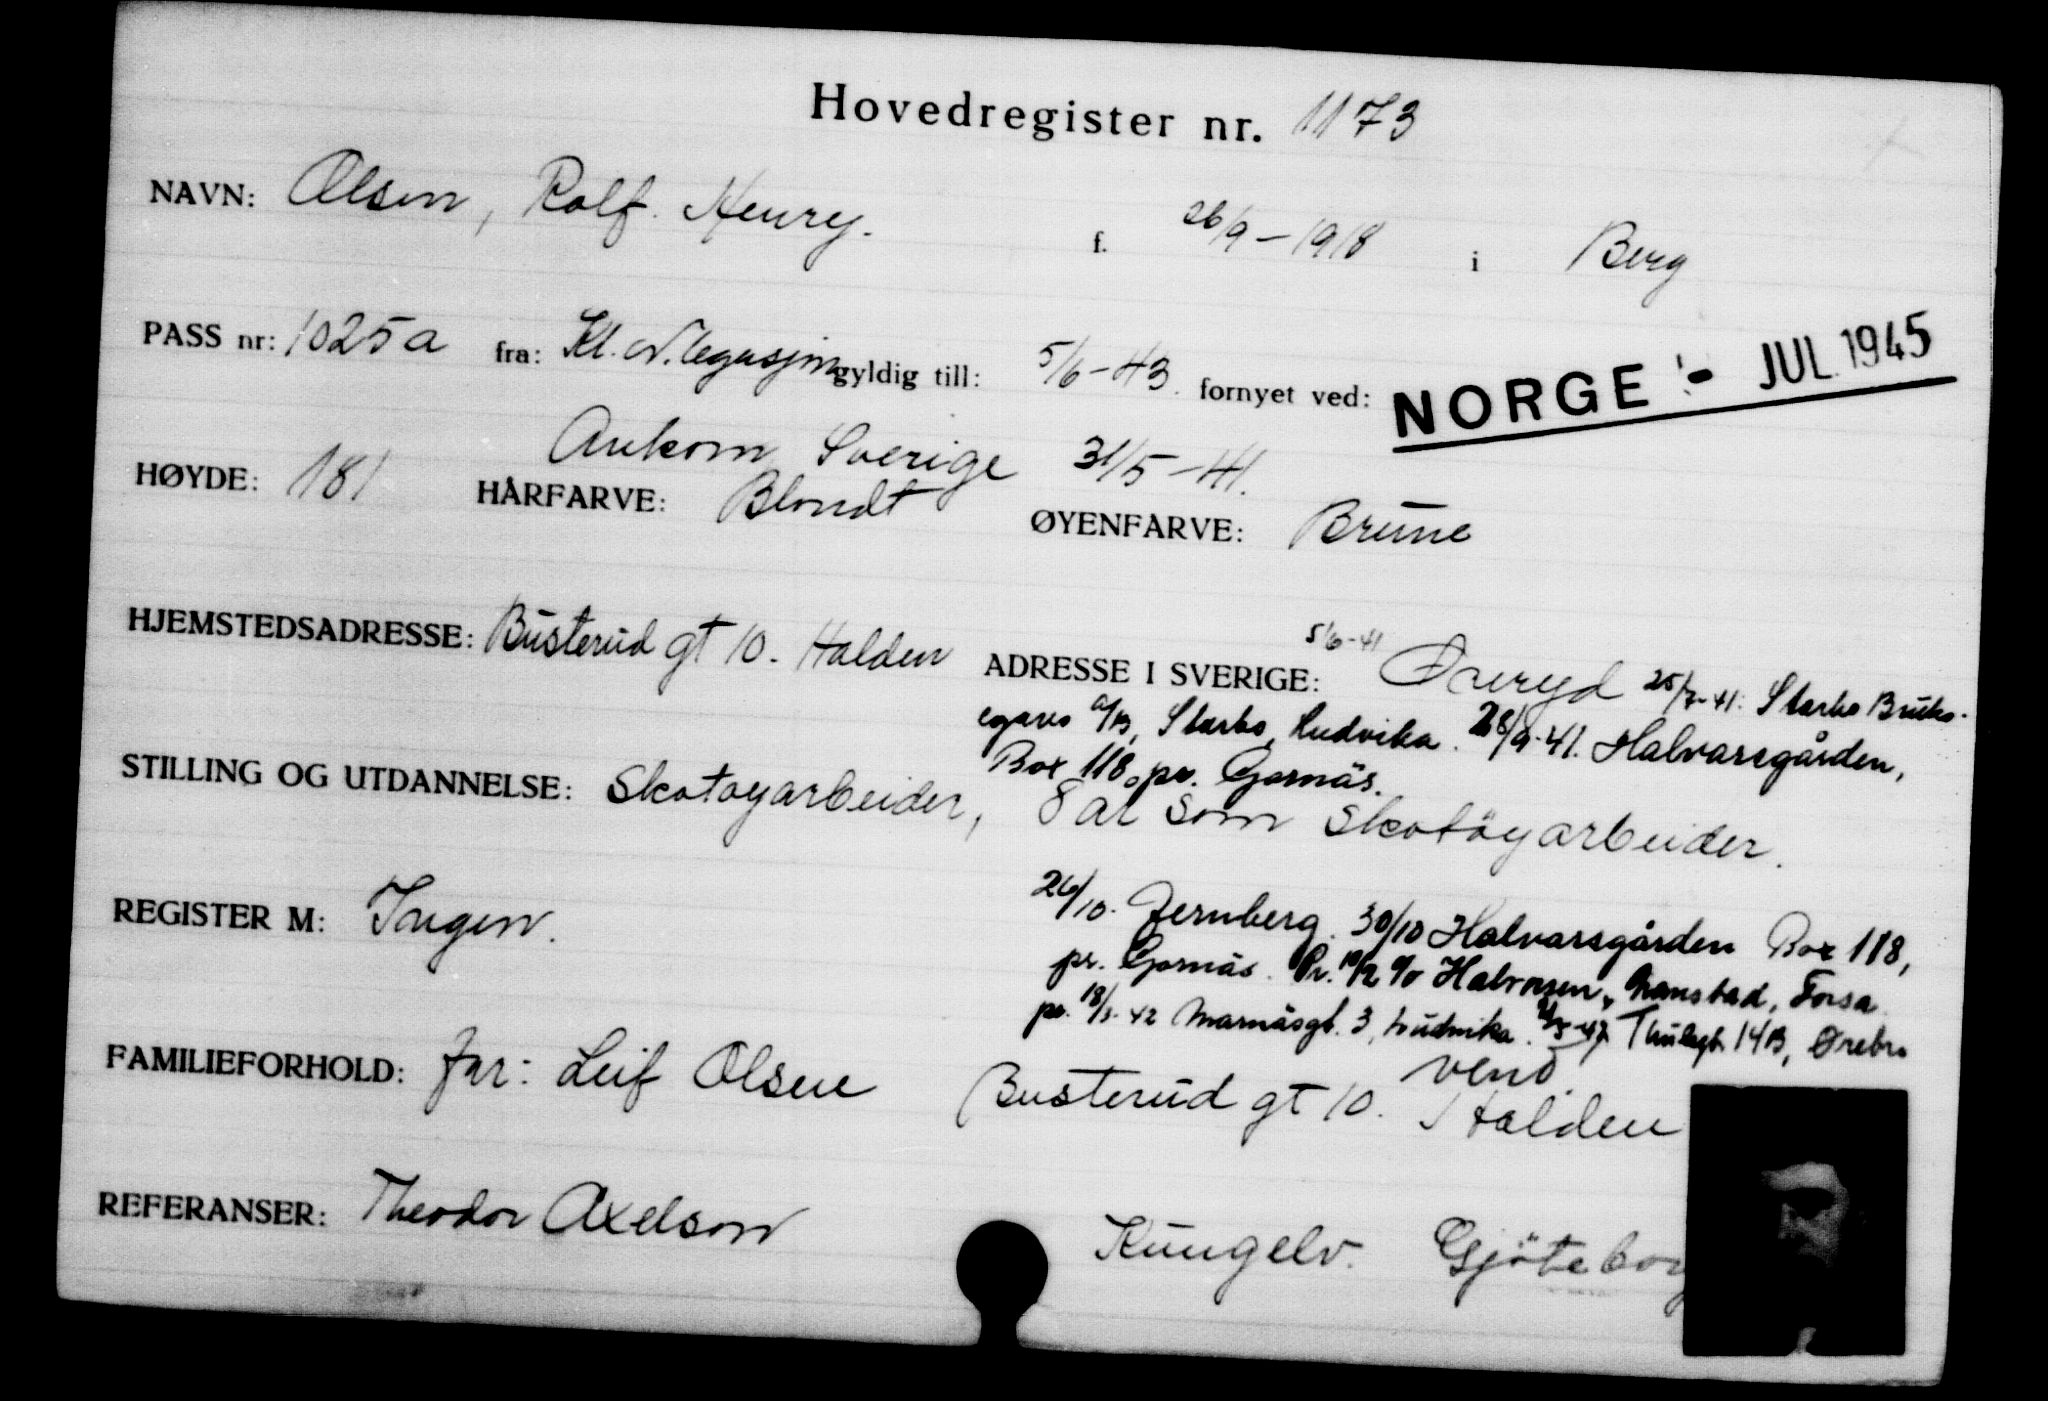 Hovedregister nr. 1173
NAVN: Olsen, Rolf. Henry. f. 26/9-1918 i Berg
PASS nr: 1025a fra: Kl. N. legasjon gyldig till: 5/6-43. fornyet ved: NORGE - JUL. 1945
Ankom Sverige 31/5-41.
HØYDE: 181 HÅRFARVE: Blondt ØYENFARVE: Brune
HJEMSTEDSADRESSE: Busterud gt 10. Halden ADRESSE I SVERIGE: 5/6-41 Øreryd 25/7-41: Starbo Bruks-
egares A/B, Starbo, Ludvika. 28/9-41. Halvarsgården,
Box 118, pr. Gornäs.
STILLING OG UTDANNELSE: Skotøyarbeider, 8 år som skotöyarbeider.
REGISTER M: Ingen.
26/10. Jernberg. 30/10 Halvarsgården Box 118,
pr. Gornäs. Pr. c/o Halvorsen, Forsa
pr. 18/3-42 Marnäsgt. 3, Ludvika. Thulegt. 14B, Ørebro
vend.
FAMILIEFORHOLD: far: Leif Olsen Busterud gt 10. Halden
REFERANSER: Theodor Axelson Kungelv. Gjøteborg